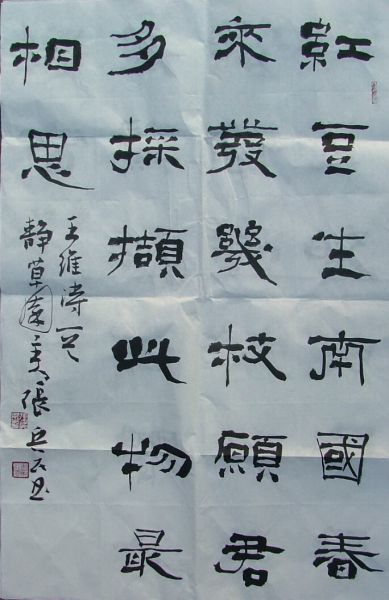 紅豆生南國春
來發幾枝願君
多採擷此物最
相思
王維诗一首
静草斋主張兵